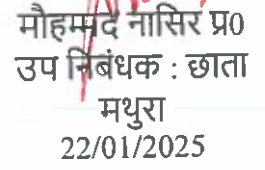 मौहम्मद नासिर प्र0
उप निबंधक : छाता
मथुरा
22/01/2025